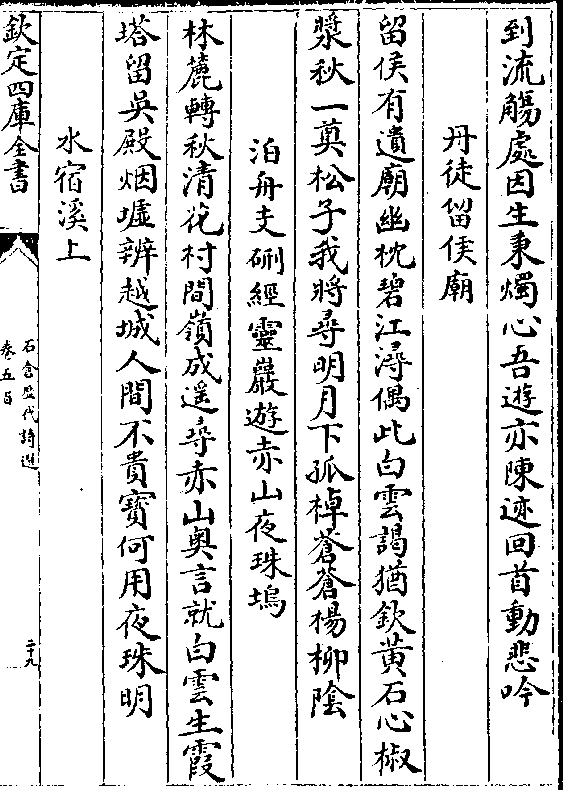 到流觴處因生秉燭心吾遊亦陳迹回首動悲吟
丹徒留侯廟
留侯有遺廟幽枕碧江潯偶此白雲謁猶欽黃石心椒
漿秋一奠松子我將尋明月下孤棹蒼蒼楊柳陰
泊舟支硎經靈巖遊赤山夜珠塢
林麓轉秋清花村間嶺成遥尋赤山奧言就白雲生霞
塔留吳殿烟墟辨越城人間不貴寶何用夜珠明
水宿溪上
欽定四庫全書
石倉歴代詩選
卷五百
二十九